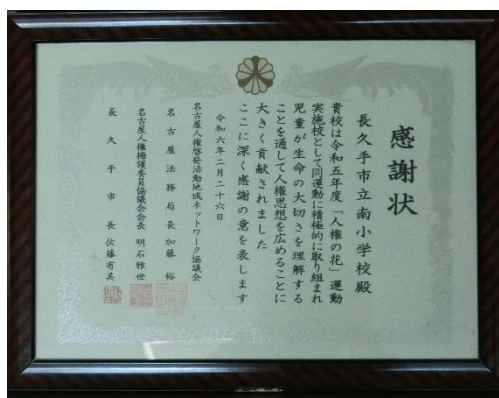 感謝状
長久手市立南小学校殿
貴校は令和五年度「人権の花」運動
実施校として同運動に積極的に取り組まれ
児童が生命の大切さを理解する
ことを通して人権思想を広めることに
大きく貢献されました
ここに深く感謝の意を表します
令和六年二月二十六日
名古屋人権啓発活動地域ネットワーク協議会
名古屋法務局長 加藤 裕
名古屋人権擁護委員協議会会長 明石雅世
長久手市長 佐藤有美